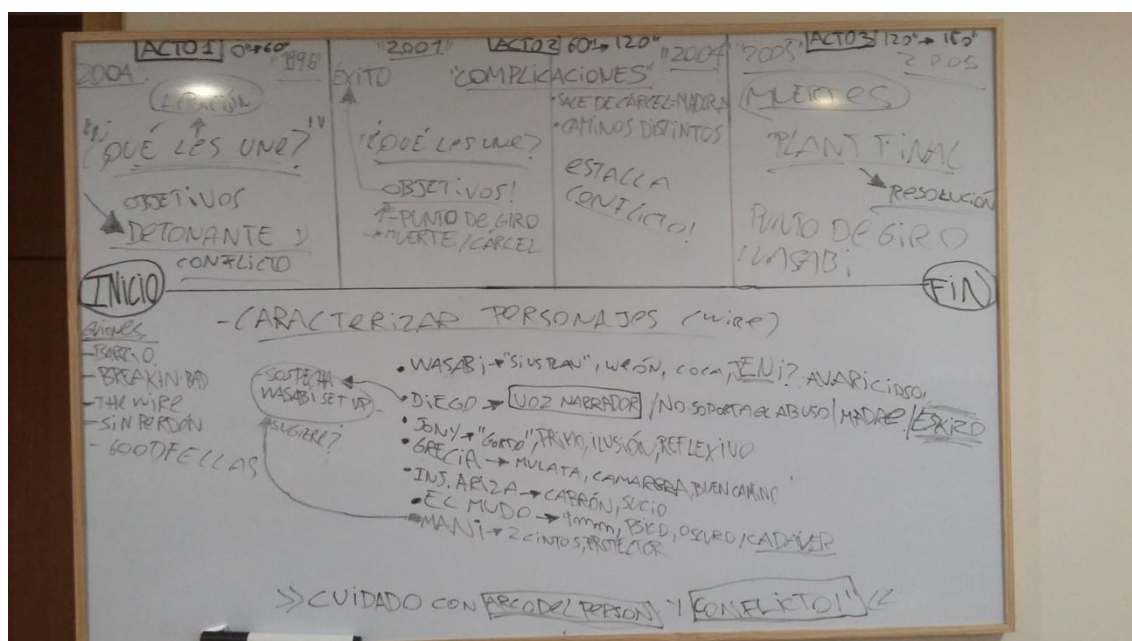 ACTO 1 0"→60"
2004 "1998"
"¿QUÉ LES UNE?"
OBJETIVOS
DETONANTE Y
CONFLICTO
"2001"
ÉXITO
¿QUÉ LES UNE?
OBJETIVOS!
1º-PUNTO DE GIRO
MUERTE/CÁRCEL
ACTO 2 60"→120"
"2004"
"COMPLICACIONES"
•SALE DE CÁRCEL=MADURA
•CAMINOS DISTINTOS
ESTALLA
CONFLICTO!
"2005" ACTO 3 120"→180"
2005
MUERTES
PLANT FINAL
RESOLUCIÓN
PUNTO DE GIRO
WASABI
INICIO
FIN
-CARACTERIZAR PERSONAJES (WIRE)
GUIONES
-BARRIO
-BREAKIN BAD
-THE WIRE
-SIN PERDÓN
-GOODFELLAS
-SOSPECHA
WASABI SET UP
SUGIERE?
•WASABI→ WEÓN, COCA, JENI? AVARICIOSO,
•DIEGO→ VOZ NARRADOR /NO SOPORTA EL ABUSO/MADRE/ESKIZO
•JONY→"GORDO", PRIMO, ILUSIÓN, REFLEXIVO
•GRECIA→ MULATA, CAMARERA, BUEN CAMINO
•INS. ARIZA→ CABRÓN, SUCIO
•EL MUDO→ 9mm, PSICO, OSCURO/CADAVER
•MANI→ 2 CINTOS, PROTECTOR
>>CUIDADO CON ARCO DEL PERSON Y CONFLICTO!<<